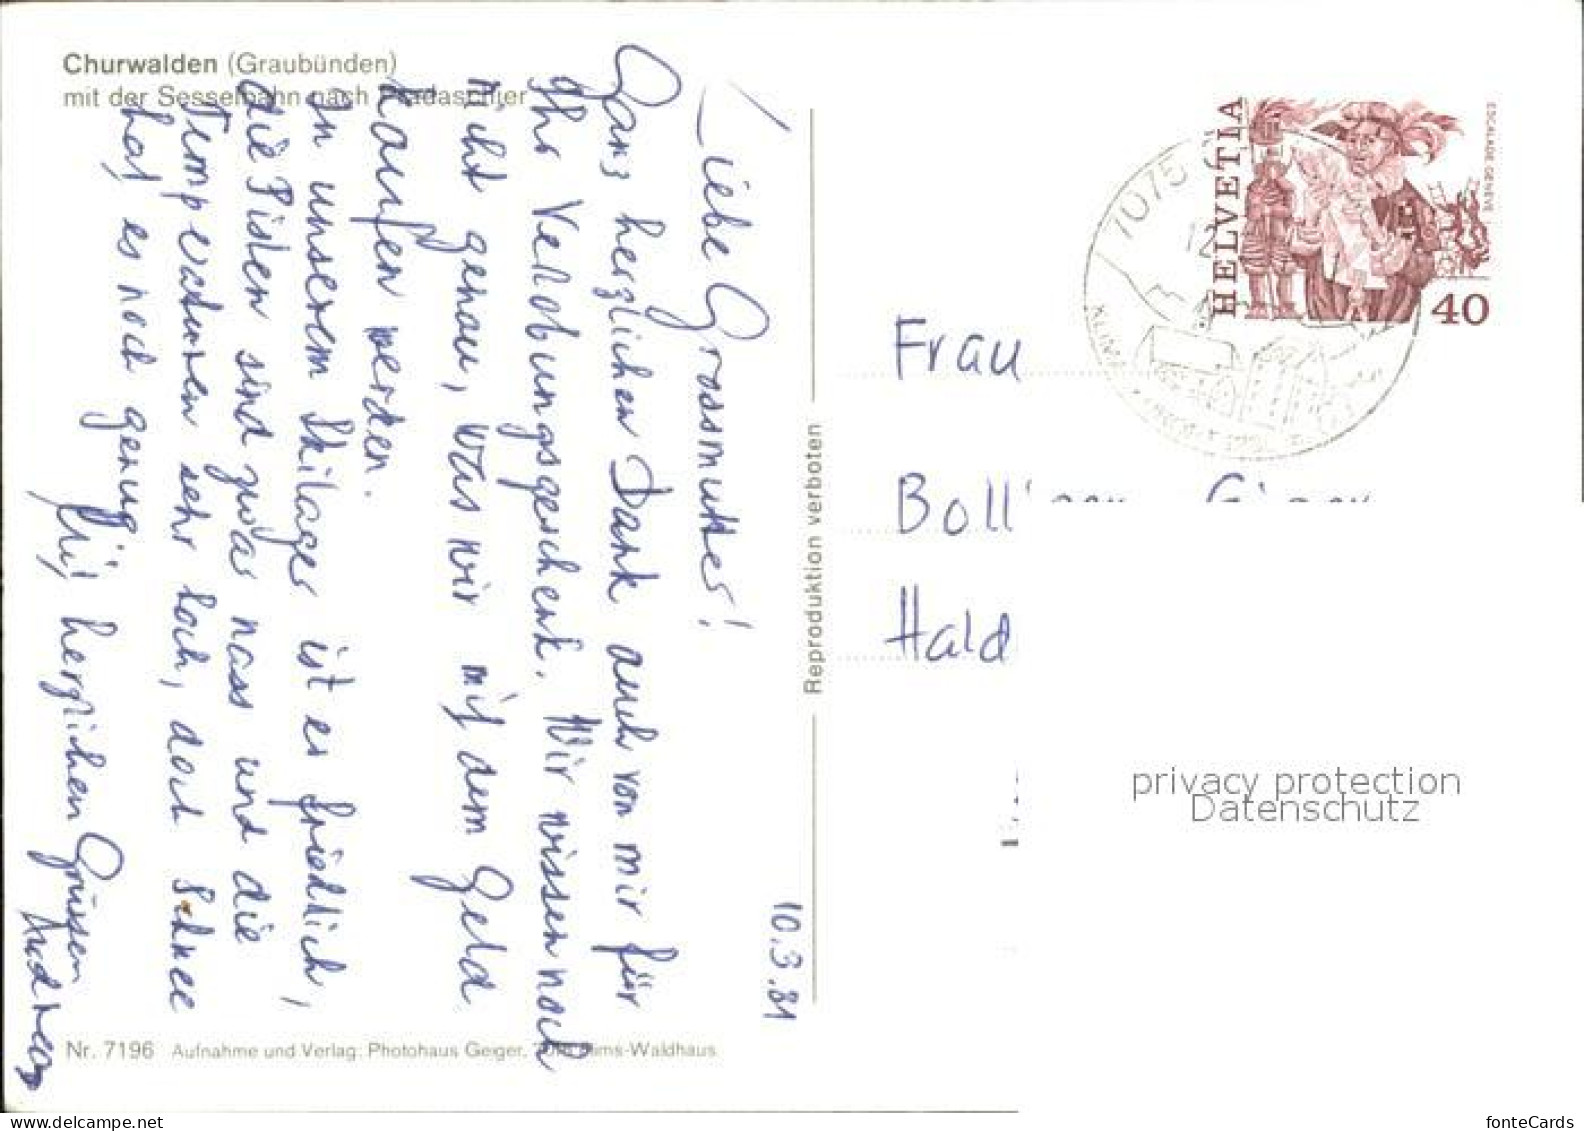 Churwalden (Graubünden)
mit der Sesselbahn nach Pradaschier
10.3.81
Liebe Grossmutter!
Ganz herzlichen Dank auch von mir für
Ihr Verlobungsgeschenk. Wir wissen noch
nicht genau, was wir mit dem Geld
kaufen werden.
In unserem Skilager ist es friedlich,
die Pisten sind zwar nass und die
Temperaturen sehr hoch, doch Schnee
hat es noch genug!
Mit herzlichen Grüssen
Andreas
Nr. 7196 Aufnahme und Verlag: Photohaus Geiger, Flims-Waldhaus
Reproduktion verboten
HELVETIA
ESCALADE GENÈVE
40
7075
12
Frau
Boll
Hald
privacy protection
Datenschutz
fonteCards